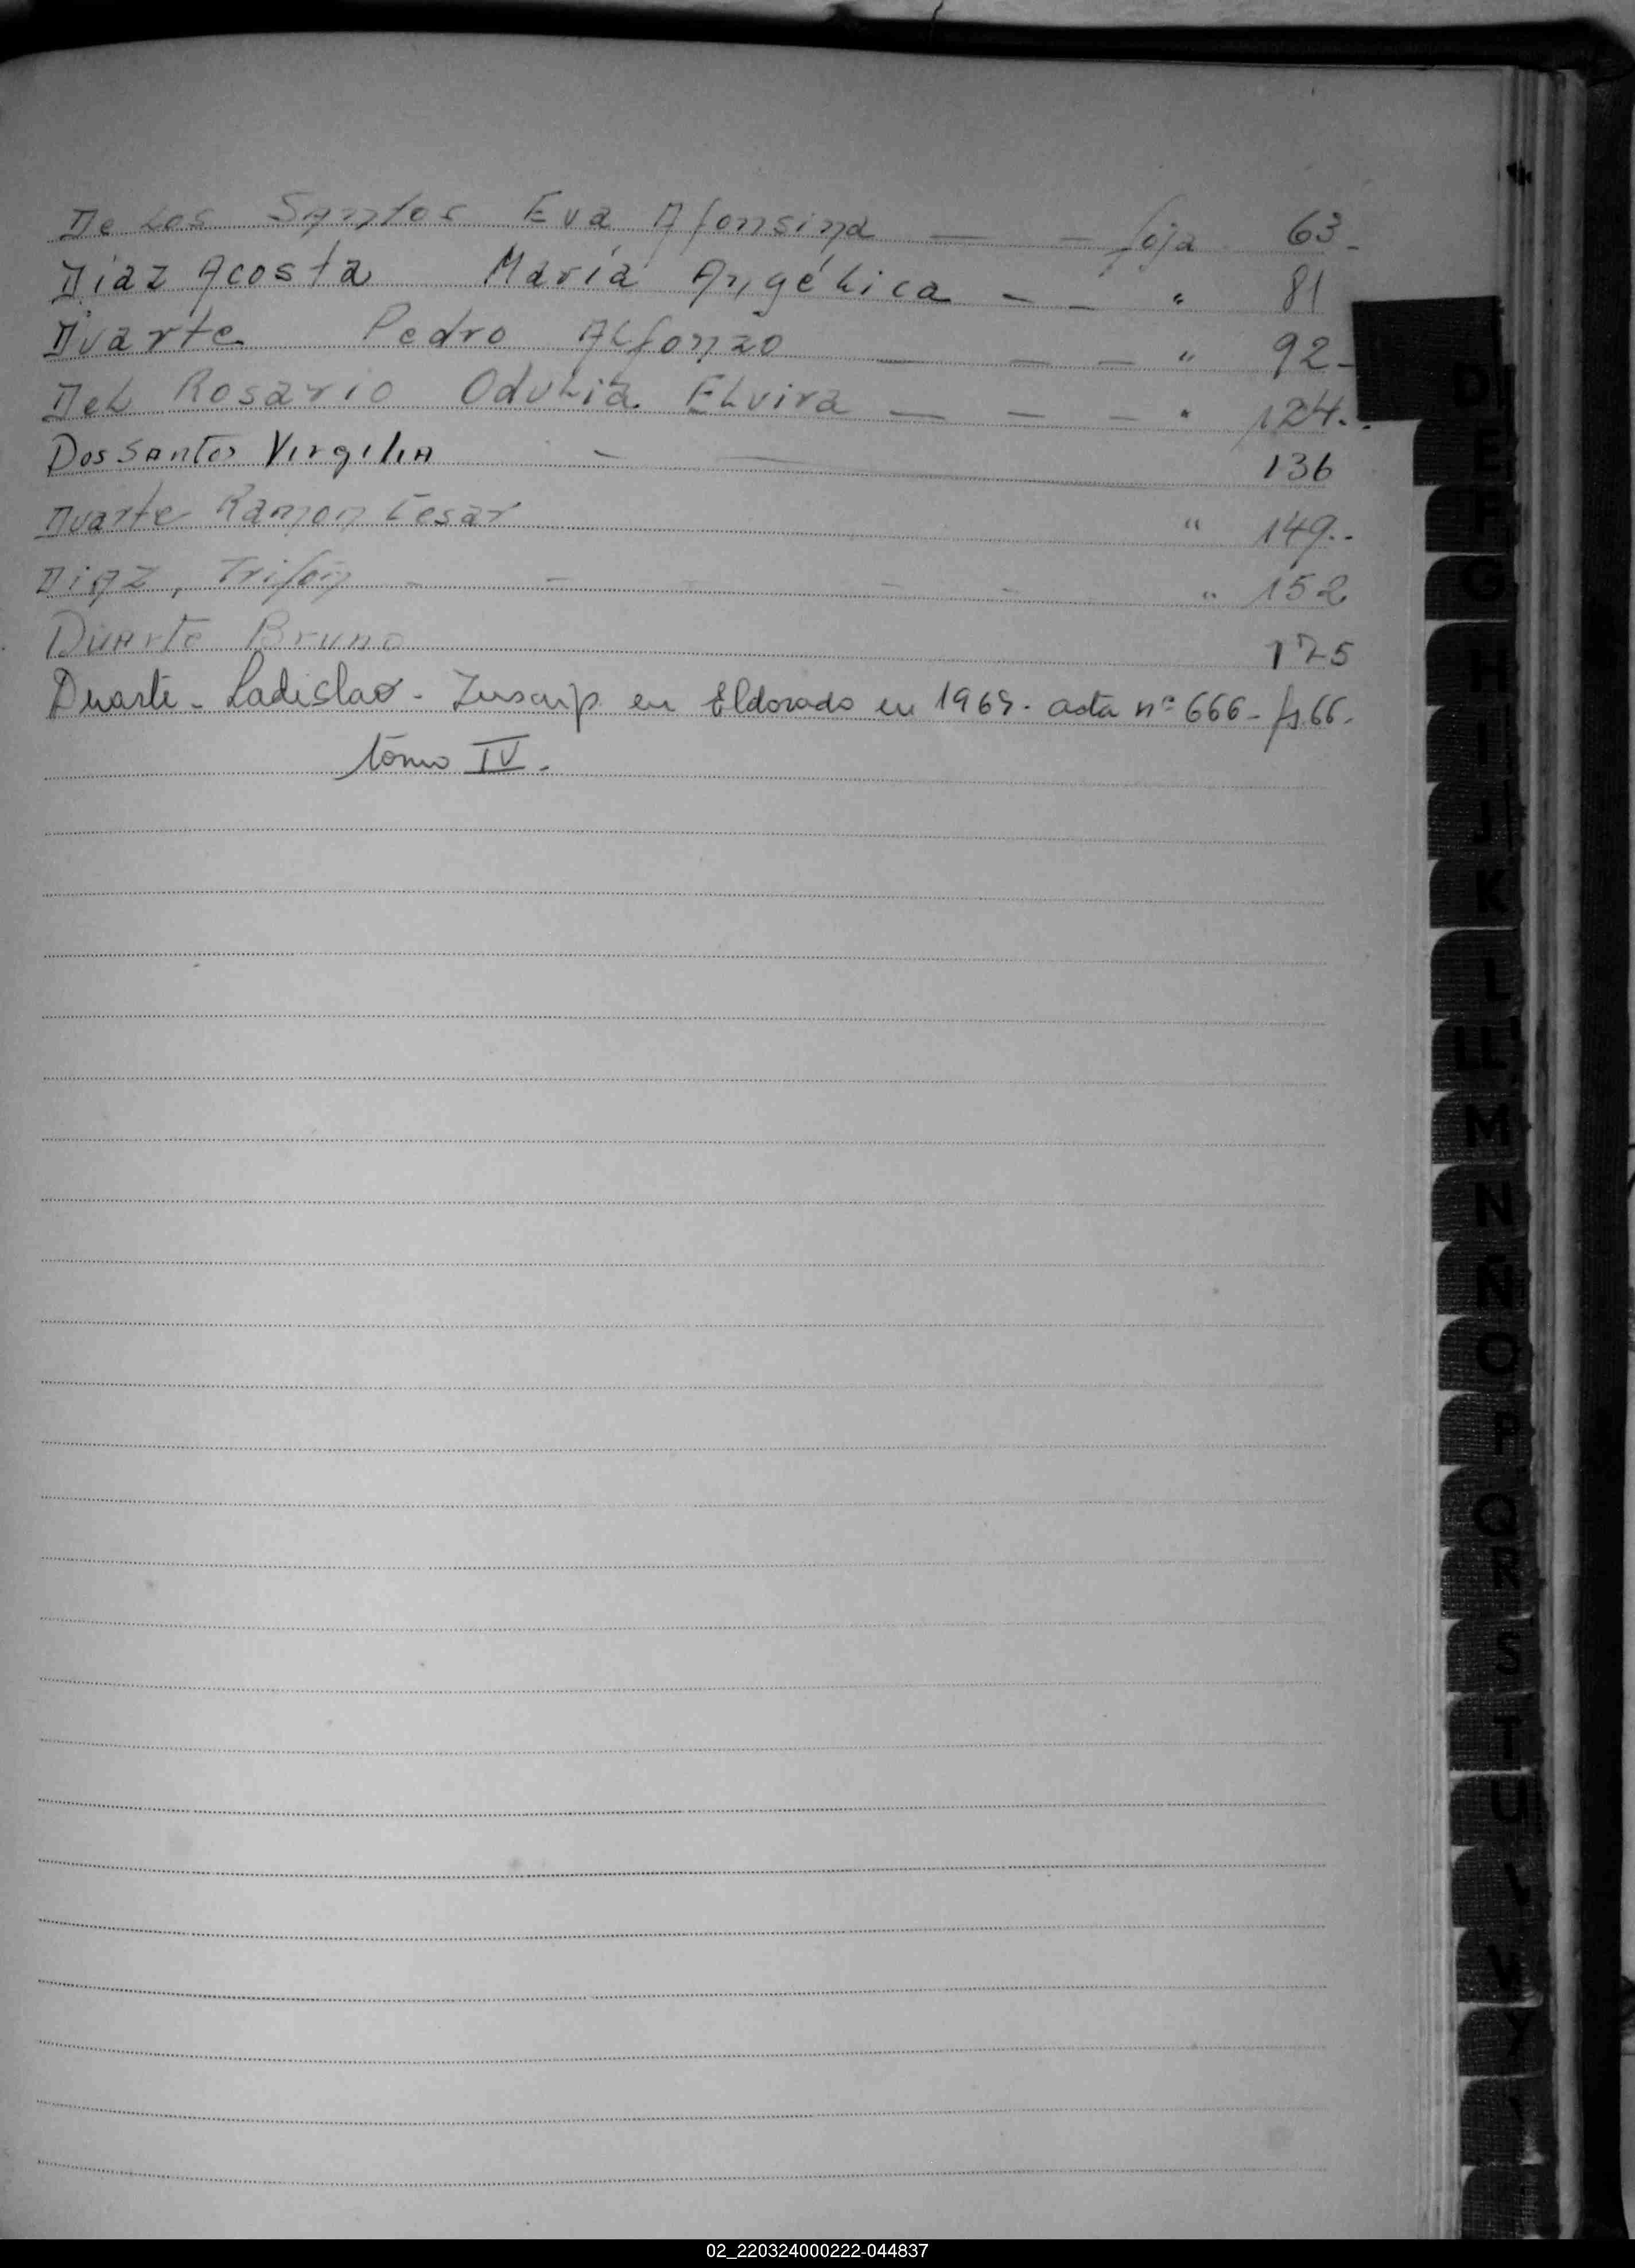 De Los Santos Eva Afonsina — — foja 63-
Diaz Acosta María Angélica - — " 81
Duarte Pedro Alfonzo — — — " 92-
Del Rosario Odulia Elvira — — — " 124.
Dos Santos Virgilia — — 136
Duarte Ramon Cesar " 149..
Diaz, Trifón - - - - - " 152
Duarte Bruno 175
Duarte - Ladislao - Inscrip. en Eldorado en 1969. acta nº 666 - fs. 66.
tomo IV.
D
E
F
G
H
I
J
K
L
LL
M
N
Ñ
O
P
Q
R
S
T
U
V
Y
02_220324000222-044837